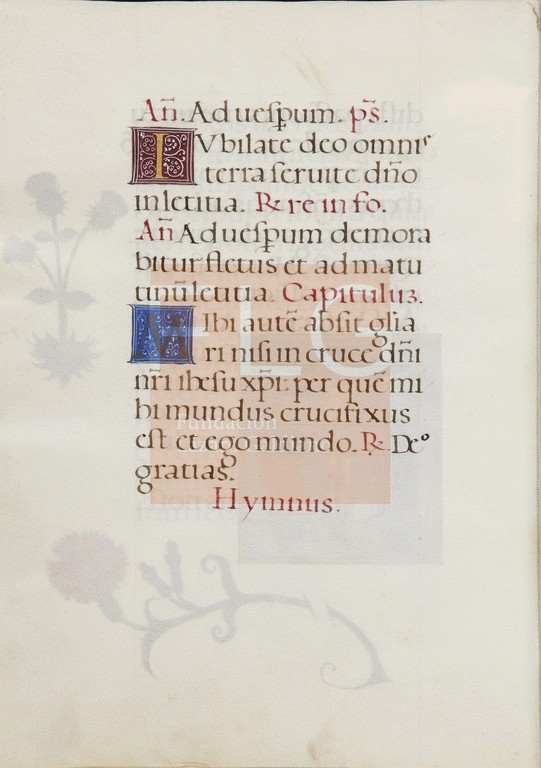 Añ. Ad uesp̃um. ps̃.
IVbilate deo omnis
terra seruite dño
in letitia. ℞. re in fo.
Añ Ad uesp̃um demora
bitur fletus et ad matu
tinũ letitia. Capitulũ.
MIbi autẽ absit glia
ri nisi in cruce dñi
nr̃i ihesu xp̃i: per quẽ mi
bi mundus crucifixus
est et ego mundo. ℞. Deo
gratias.
Hymnus.
FLG
Fundación